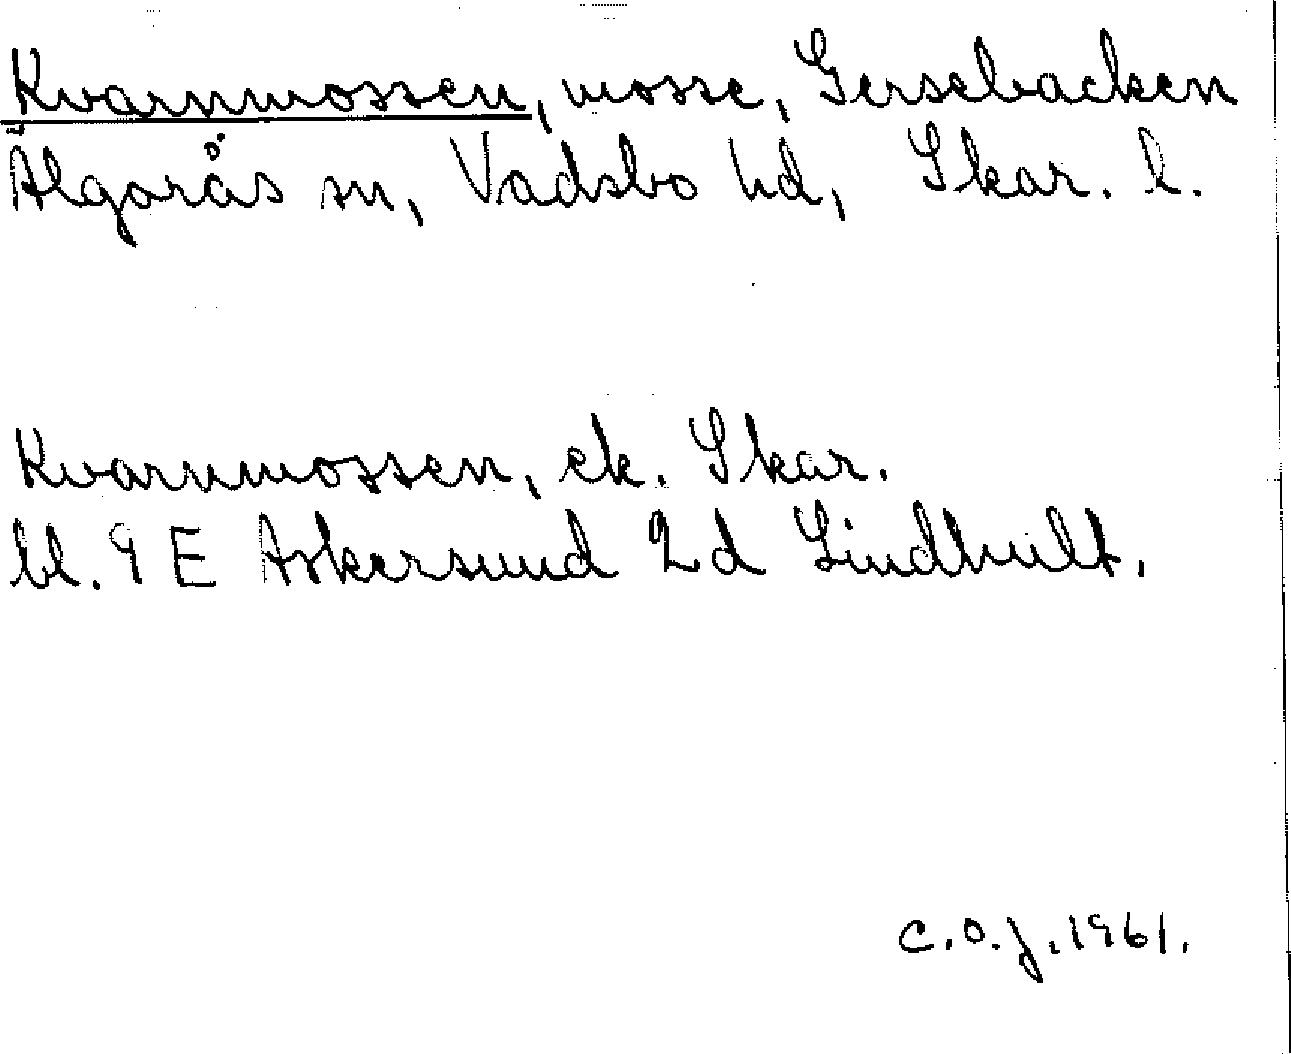 Kvarnmossen, mosse, Gersebacken
Älgarås sn, Vadsbo hd, Skar. l.
Kvarnmossen, ek. Skar.
bl. 9 E Askersund 2d Lindhult.
C.O.J. 1961.